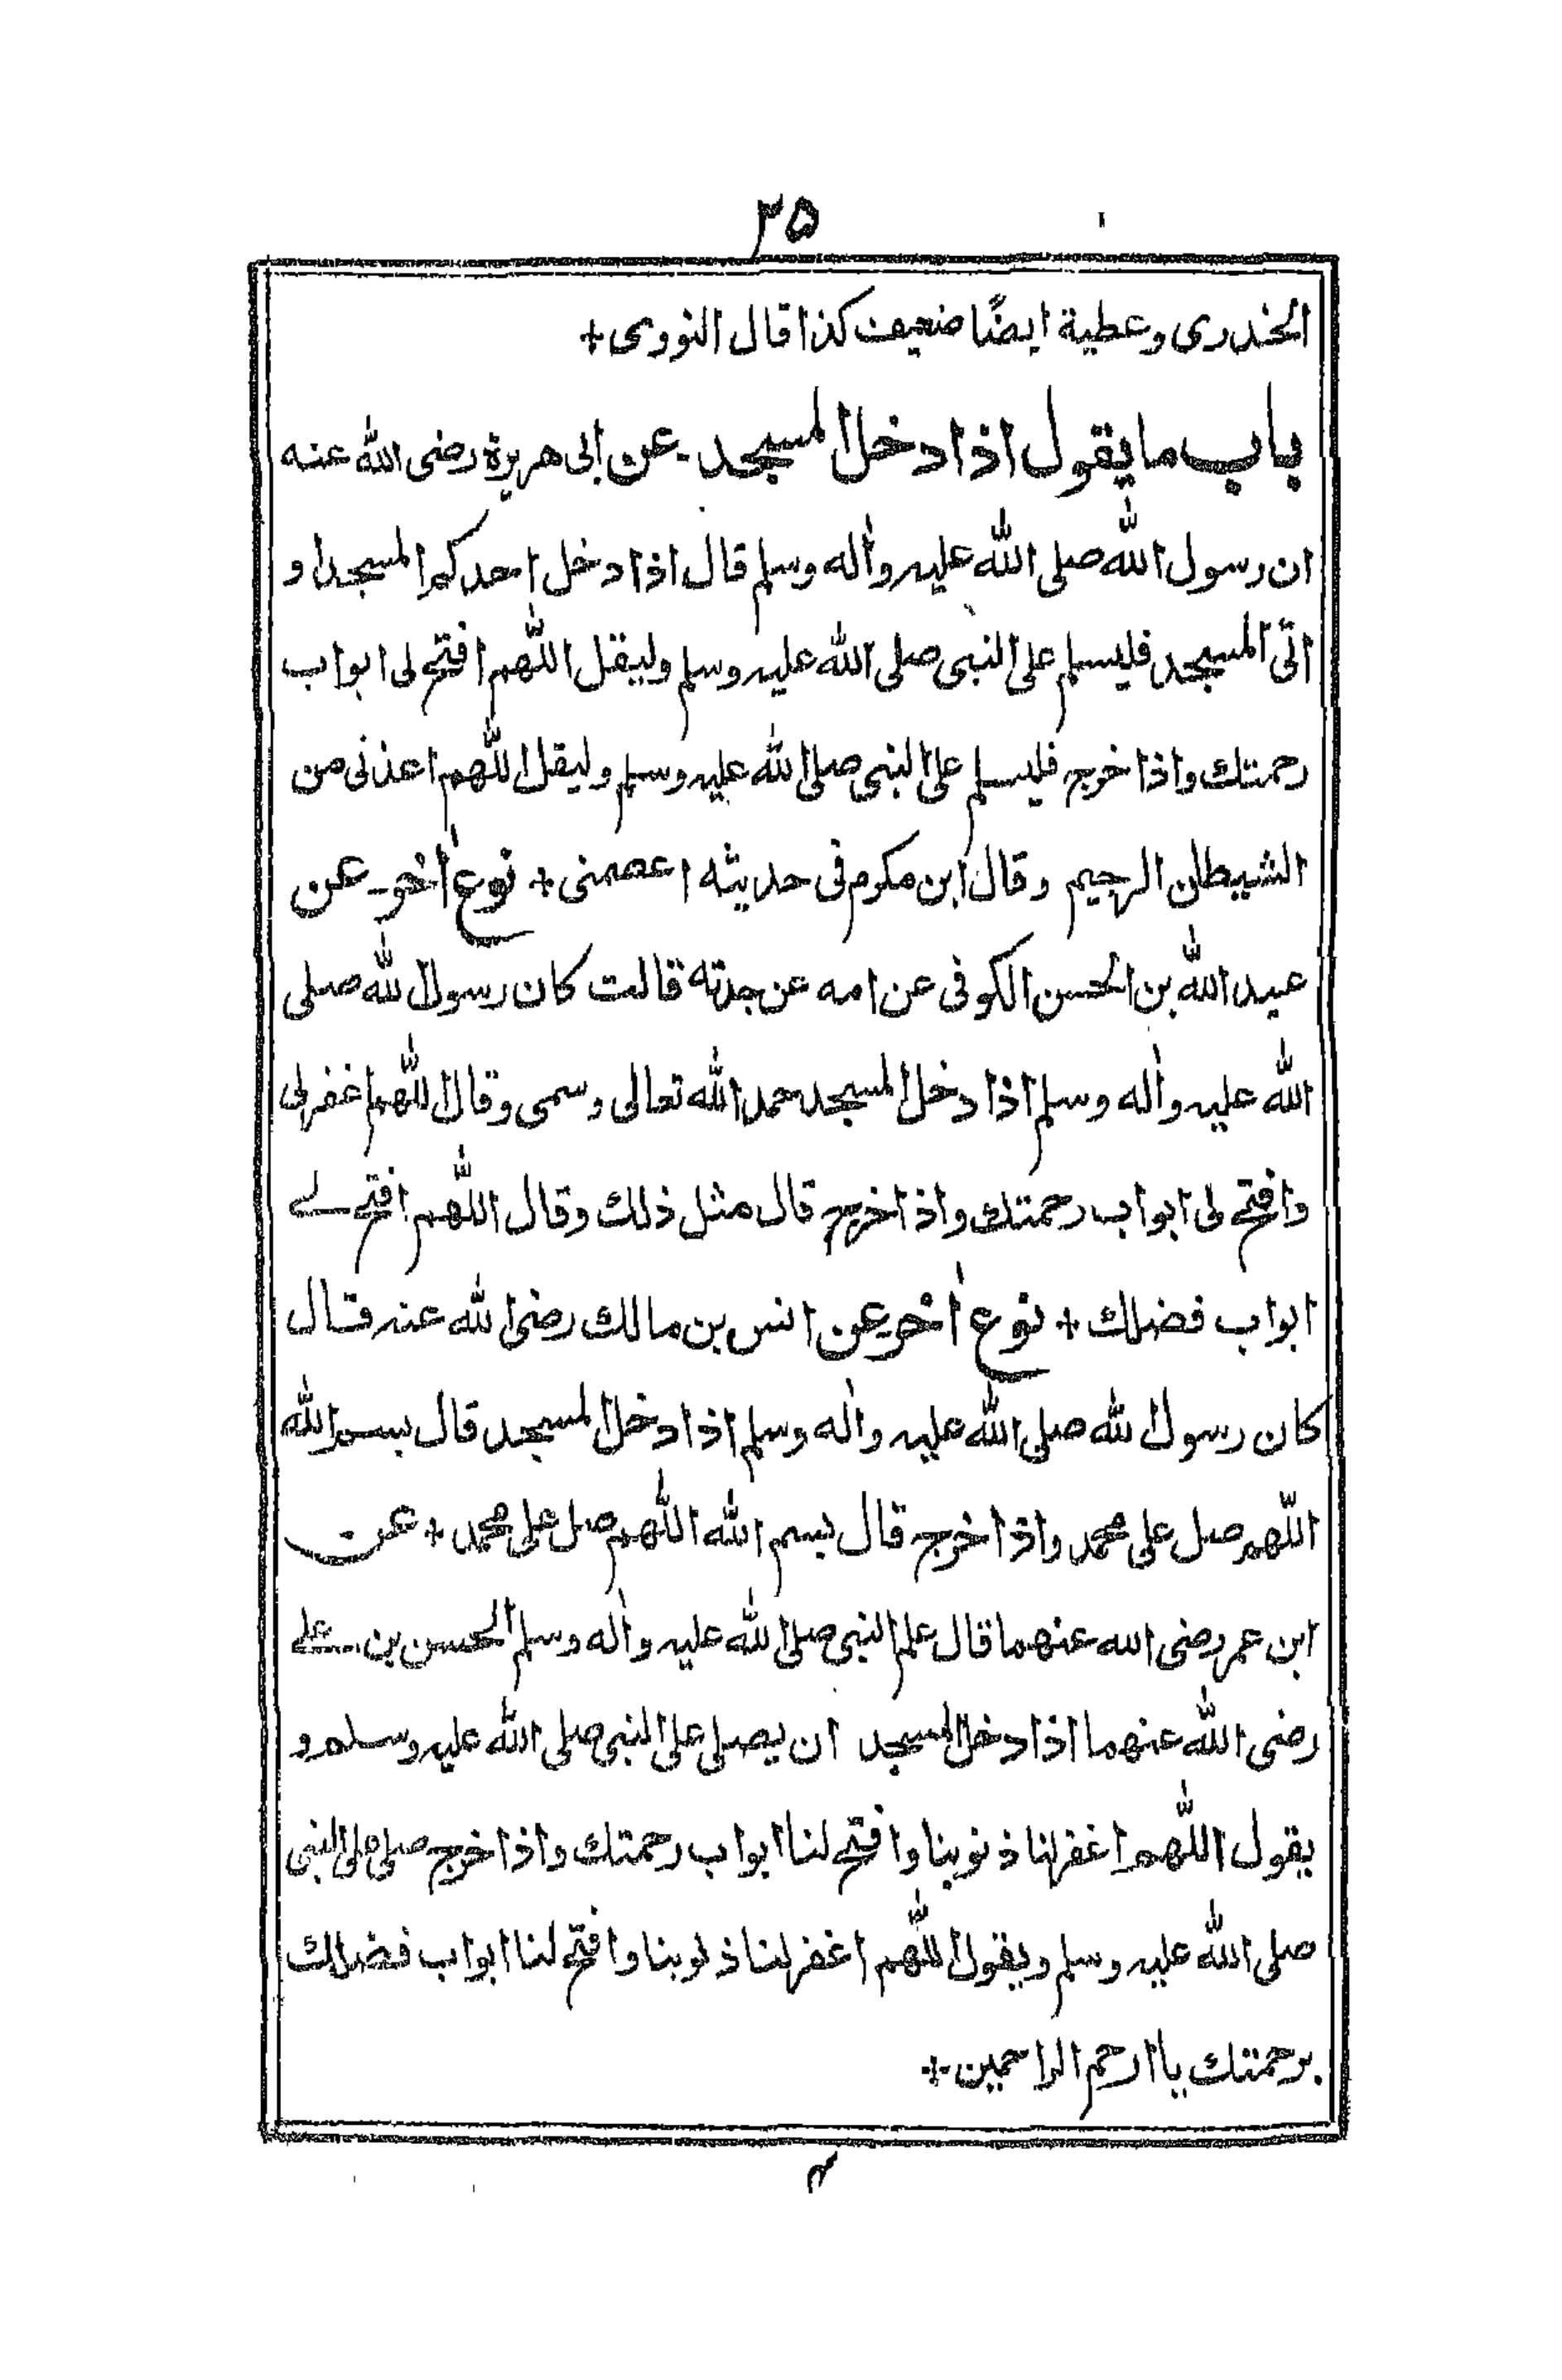 ٣٥
الخدرى وعطية ايضًا ضعيف كذا قال النووى +
باب ما يقول اذا دخل المسجد - عن ابى هريرة رضى الله عنه
ان رسول الله صلى الله عليه واٰله وسلم قال اذا دخل احدكم المسجد او
اتى المسجد فليسلم على النبى صلى الله عليه وسلم وليقل اللّٰهم افتح لى ابواب
رحمتك واذا خرج فليسلم على النبى صلى الله عليه وسلم وليقل اللّٰهم اعذنى من
الشيطان الرجيم وقال ابن مكرم فى حديثه اعصمنى + نوع اٰخر - عن
عبد الله بن الحسن الكوفى عن امه عن جدته قالت كان رسول الله صلى
الله عليه واٰله وسلم اذا دخل المسجد حمد الله تعالى وسمى وقال اللّٰهم اغفر لى
وافتح لى ابواب رحمتك واذا خرج قال مثل ذلك وقال اللّٰهم افتح لے
ابواب فضلك + نوع اٰخر عن انس بن مالك رضى الله عنه قال
كان رسول الله صلى الله عليه واٰله وسلم اذا دخل المسجد قال بسم الله
اللّٰهم صل على محمد واذا خرج قال بسم الله اللّٰهم صل على محمد + عن
ابن عمر رضى الله عنهما قال علم النبى صلى الله عليه واٰله وسلم الحسن بن علے
رضى الله عنهما اذا دخل المسجد ان يصلى على النبى صلى الله عليه وسلم و
يقول اللّٰهم اغفر لنا ذنوبنا وافتح لنا ابواب رحمتك واذا خرج صلى على النبى
صلى الله عليه وسلم ويقول اللّٰهم اغفر لنا ذنوبنا وافتح لنا ابواب فضلك
برحمتك يا ارحم الراحمين +